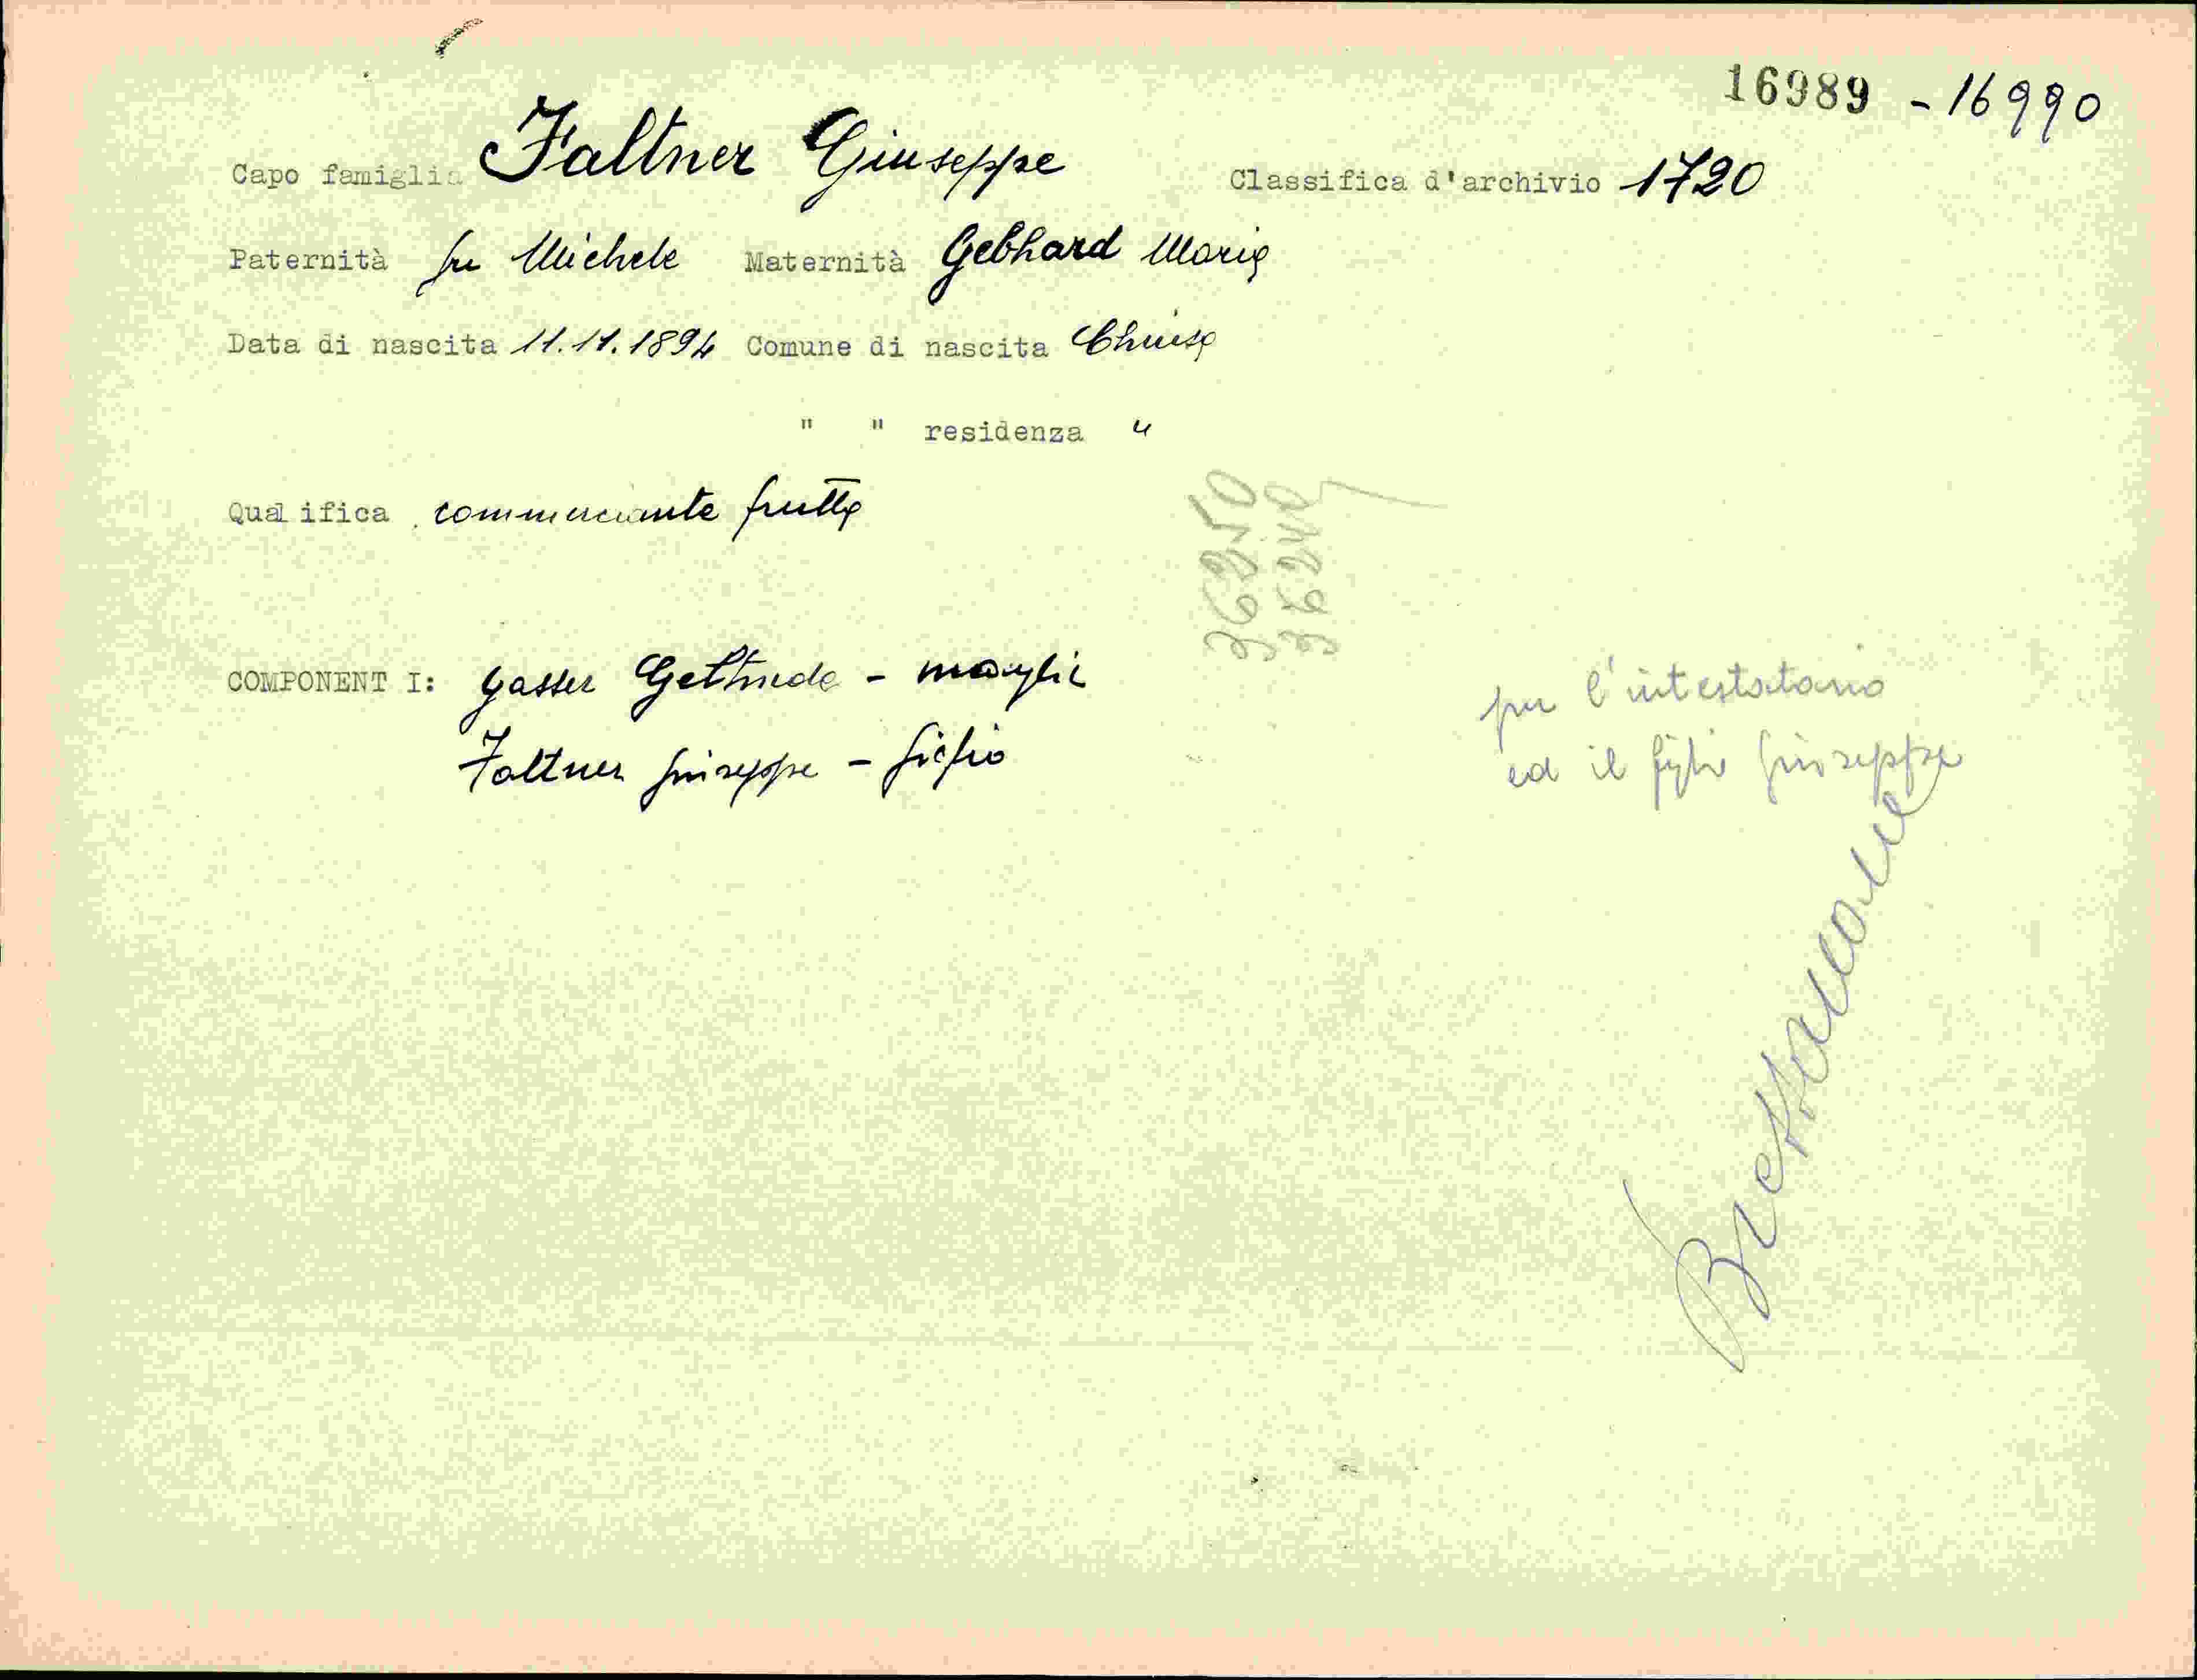 16989 - 16990
Capo famiglia Faltner Giuseppe Classifica d'archivio 1720
Paternità fu Michele Maternità Gebhard Maria
Data di nascita 11.11.1894 Comune di nascita Chiusa
" " residenza "
Qualifica commerciante frutta
36250
36240
COMPONENTI: Gasser Geltrude - moglie
Faltner Giuseppe - figlio
per l'intestatario
ed il figlio Giuseppe
Bressanone